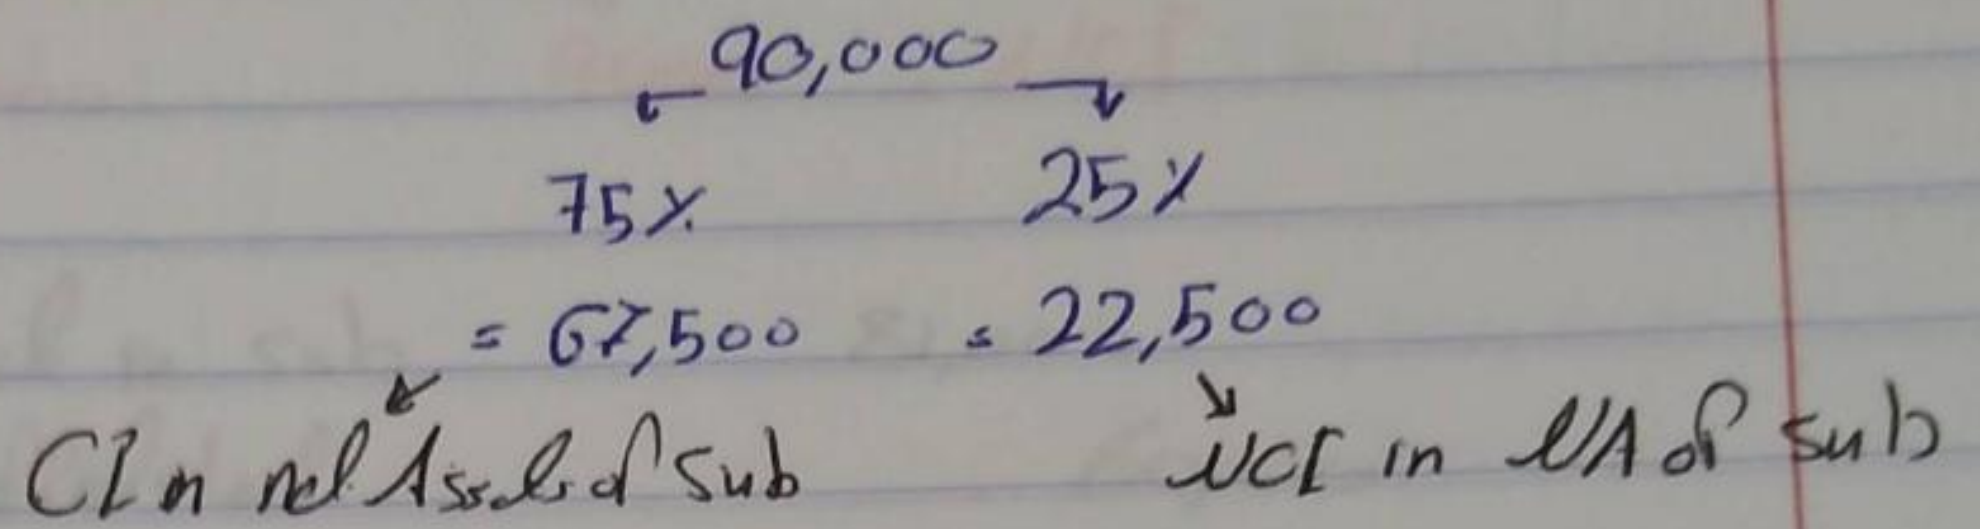 90,000
75% 25%
= 67,500 = 22,500
CI in net Assets of Sub NCI in NA of sub